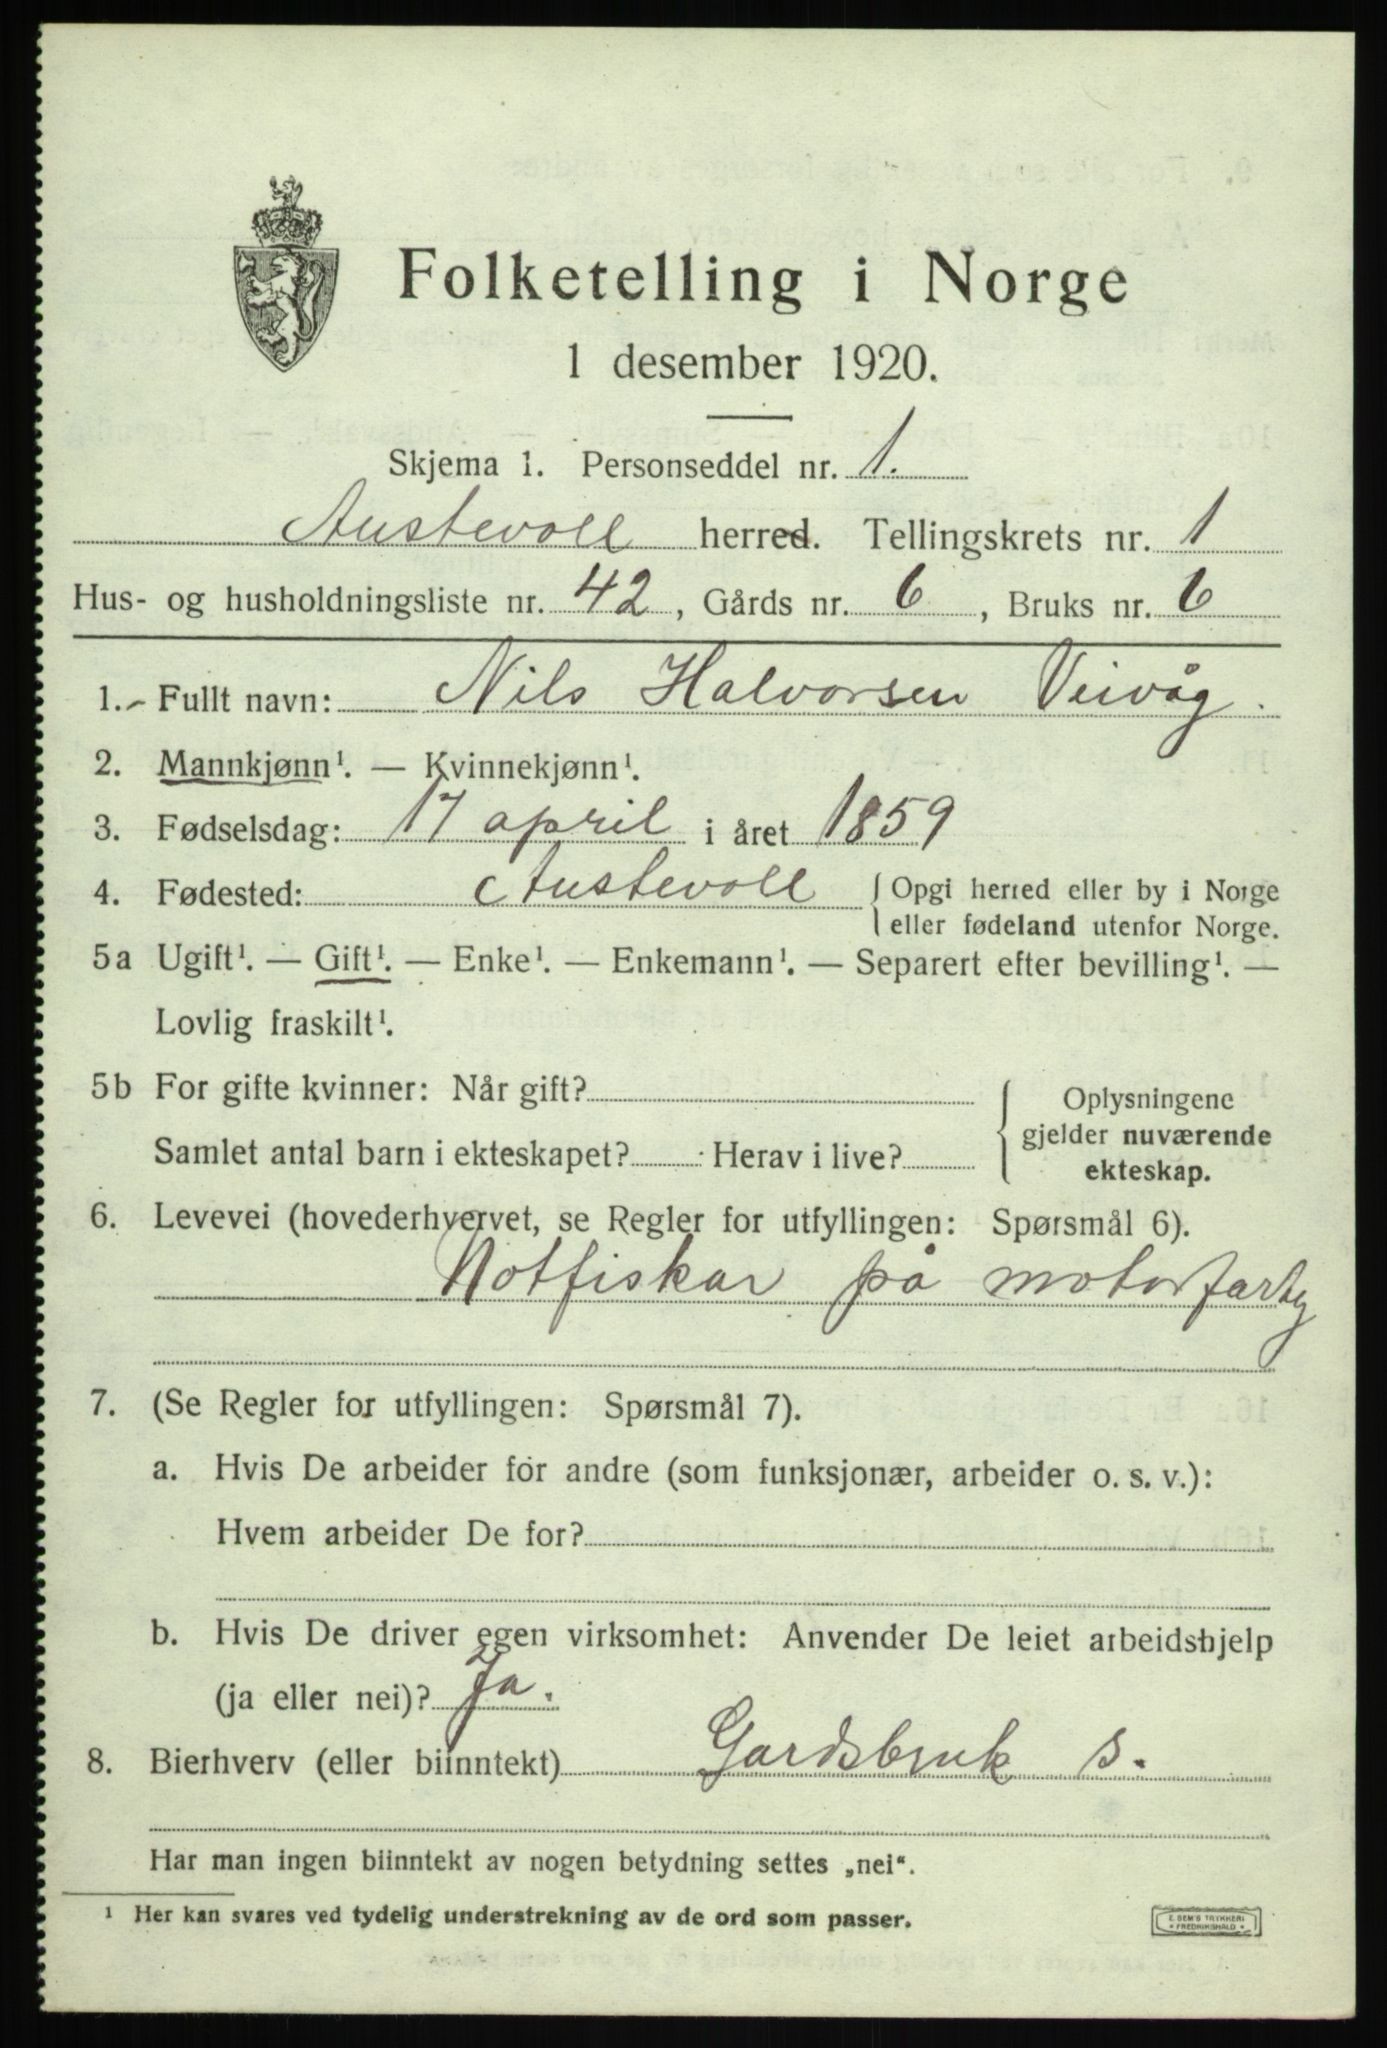 Folketelling i Norge
1 desember 1920.
Skjema 1. Personseddel nr. 1.
Austevoll herred. Tellingskrets nr. 1
Hus- og husholdningsliste nr. 42, Gårds nr. 6, Bruks nr. 6
1. Fullt navn: Nils Halvorsen Veivåg.
2. Mannkjønn¹. — Kvinnekjønn¹.
3. Fødselsdag: 17 april i året 1859
4. Fødested: Austevoll { Opgi herred eller by i Norge
eller fødeland utenfor Norge.
5a Ugift¹. — Gift¹. — Enke¹. — Enkemann¹. — Separert efter bevilling¹. —
Lovlig fraskilt¹.
5b For gifte kvinner: Når gift? { Oplysningene
gjelder nuværende
Samlet antal barn i ekteskapet? Herav i live?
ekteskap.
6. Levevei (hovederhvervet, se Regler for utfyllingen: Spørsmål 6).
Notfiskar på motorfarty
7. (Se Regler for utfyllingen: Spørsmål 7).
a. Hvis De arbeider for andre (som funksjonær, arbeider o. s. v.):
Hvem arbeider De for?
b. Hvis De driver egen virksomhet: Anvender De leiet arbeidshjelp
(ja eller nei)? Ja.
8. Bierhverv (eller biinntekt) Gardsbruk s.
Har man ingen biinntekt av nogen betydning settes „nei“.
¹ Her kan svares ved tydelig understrekning av de ord som passer.
E. SEM'S TRYKKERI
* FREDRIKSHALD *